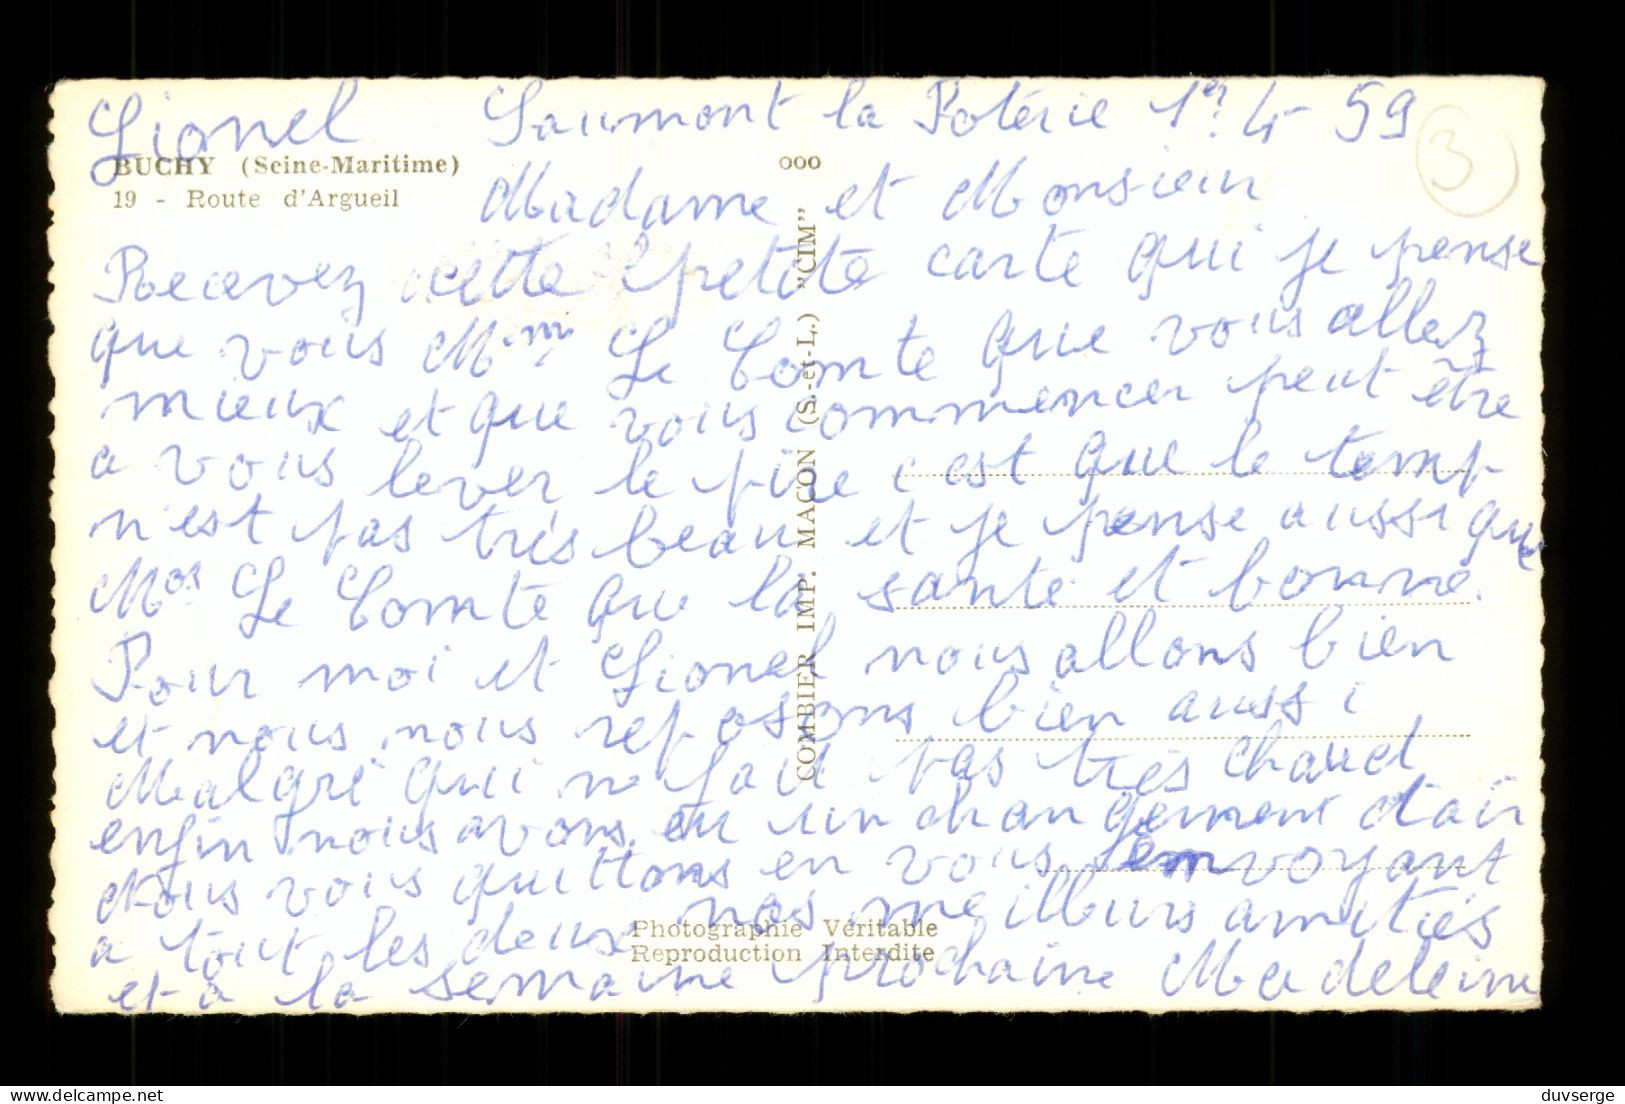 Lionel Saumont la Poterie 1er 4 - 59
3
BUCHY (Seine-Maritime)
19 - Route d'Argueil
ooo
Madame et Monsieur
Recevez cette petite carte qui je pense
que vous Mme Le Comte que vous allez
mieux et que vous commencer peut être
a vous lever le pire c est que le temp
n'est pas très beau et je pense aussi que
Mos Le Comte que la santé et bonne.
Pour moi et Lionel nous allons bien
et nous nous reposons bien aussi
Malgré qui n fait pas très chaud
enfin nous avons eu un changement d'air
Nous vous quittons en vous envoyant
a tout les deux nos meilleurs amitiés
et a la semaine prochaine Madeleine
COMBIER IMP. MACON (S.-et-L.) "CIM"
Photographie Véritable
Reproduction Interdite
delcampe.net
duvserge